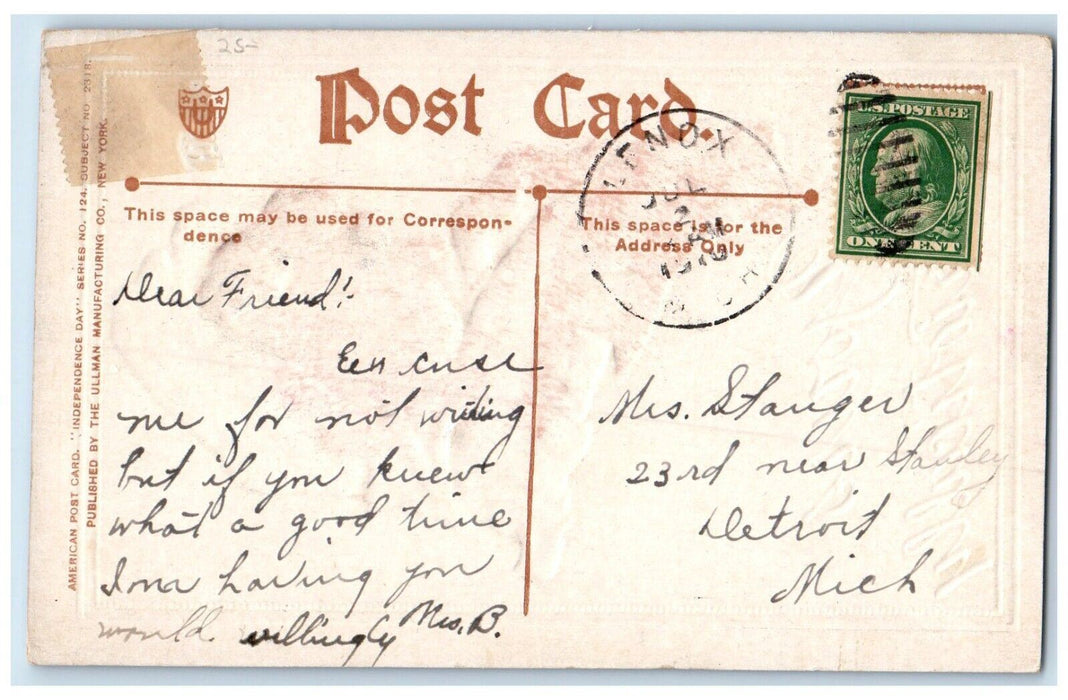 25-
Post Card.
AMERICAN POST CARD. "INDEPENDENCE DAY" SERIES NO. 124. SUBJECT NO. 2318.
PUBLISHED BY THE ULLMAN MANUFACTURING CO., NEW YORK.
U.S. POSTAGE
ONE CENT
LENOX
JUL
2
AM
1910
MICH
This space may be used for Correspon-
dence
Dear Friend!
Excuse
me for not writing
but if you knew
what a good time
I am having you
would willingly Mrs. B.
This space is for the
Address Only
Mrs. Stanger
23rd near Stanley
Detroit
Mich